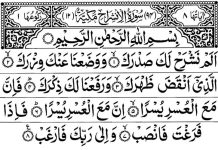 اٰیاتها ۸ (۹۴) سُوْرَةُ الْاِنْشِرَاحِ مَكِّيَّةٌ (۱۲) رُكُوْعُهَا ۱
بِسْمِ اللّٰهِ الرَّحْمٰنِ الرَّحِيْمِ
اَلَمْ نَشْرَحْ لَكَ صَدْرَكَ ۙ وَوَضَعْنَا عَنْكَ وِزْرَكَ ۙ
الَّذِيْٓ اَنْقَضَ ظَهْرَكَ ۙ وَرَفَعْنَا لَكَ ذِكْرَكَ ؕ فَاِنَّ
مَعَ الْعُسْرِ يُسْرًا ۙ اِنَّ مَعَ الْعُسْرِ يُسْرًا ؕ فَاِذَا
فَرَغْتَ فَانْصَبْ ۙ وَاِلٰى رَبِّكَ فَارْغَبْ